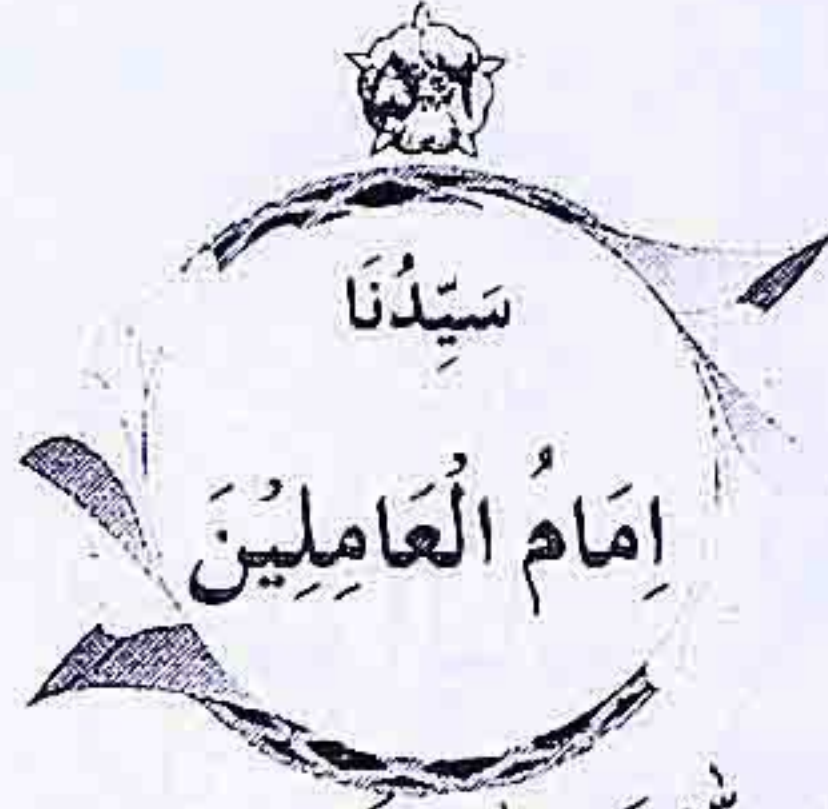 سَيِّدُنَا
اِمَامُ الْعَامِلِيْنَ